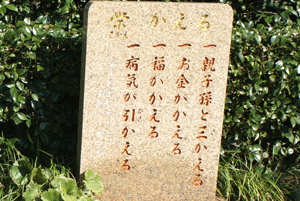 かえる
一親子孫と三かえる
一お金がかえる
一福がかえる
一病気が引かえる